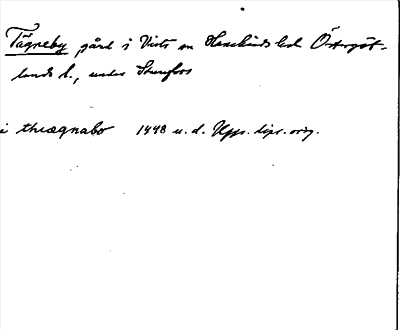 Tägneby gård i Vists sn Hanekinds hd Östergöt-
lands l., under Sturefors
i thiægnabo 1448 u. d. Upps. dipl. orig.